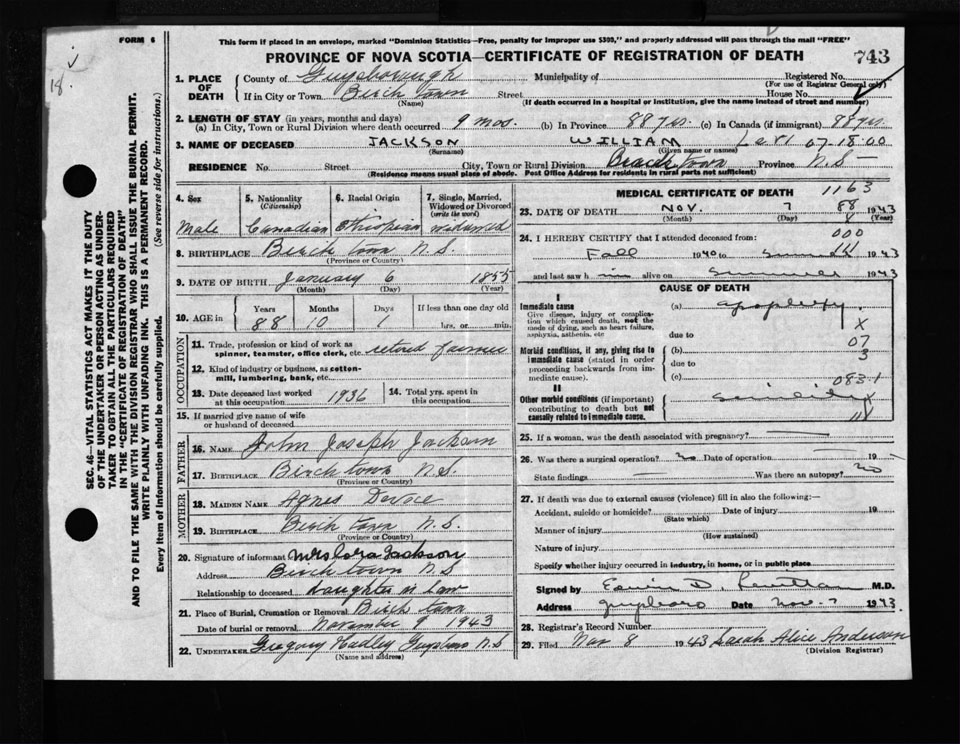 FORM 6
18.
This form if placed in an envelope, marked "Dominion Statistics—Free, penalty for improper use $300," and properly addressed will pass through the mail "FREE"
PROVINCE OF NOVA SCOTIA—CERTIFICATE OF REGISTRATION OF DEATH 743
1. PLACE OF DEATH County of Guysborough Municipality of Registered No.
(For use of Registrar General only)
If in City or Town Birch town Street House No.
(Name) (If death occurred in a hospital or institution, give the name instead of street and number)
2. LENGTH OF STAY (in years, months and days)
(a) In City, Town or Rural Division where death occurred 9 mos. (b) In Province 88 yrs. (c) In Canada (if immigrant) 88 yrs.
3. NAME OF DECEASED JACKSON WILLIAM Levi 07-18-00
(Surname) (Given name or names)
RESIDENCE No. Street City, Town or Rural Division Birch town Province N.S—
(Residence means usual place of abode. Post Office Address for residents in rural parts not sufficient)
4. Sex 5. Nationality (Citizenship) 6. Racial Origin 7. Single, Married, Widowed or Divorced (write the word)
Male Canadian Ethiopian Widowed
8. BIRTHPLACE Birch town N.S.
(Province or Country)
9. DATE OF BIRTH January 6 1855
(Month) (Day) (Year)
10. AGE in Years Months Days If less than one day old
88 10 1 hrs. or min.
OCCUPATION
11. Trade, profession or kind of work as spinner, teamster, office clerk, etc. retired farmer
12. Kind of industry or business, as cotton-mill, lumbering, bank, etc.
13. Date deceased last worked at this occupation 1936 14. Total yrs. spent in this occupation
15. If married give name of wife or husband of deceased
FATHER
16. NAME John Joseph Jackson
17. BIRTHPLACE Birch town N.S.
(Province or Country)
MOTHER
18. MAIDEN NAME Agnes Devoe
19. BIRTHPLACE Birch town N.S.
(Province or Country)
20. Signature of informant Mrs Cora Jackson
Address Birch town N.S
Relationship to deceased Daughter in Law
21. Place of Burial, Cremation or Removal Birch town
Date of burial or removal November 9 1943
22. UNDERTAKER Gregory Hadley Guysboro N.S
(Name and address)
MEDICAL CERTIFICATE OF DEATH 1163
23. DATE OF DEATH NOV. 7 88 1943
(Month) (Day) (Year)
24. I HEREBY CERTIFY that I attended deceased from: 000
Fall 1940 to Summer 1943
and last saw him alive on Summer 1943
CAUSE OF DEATH
I
Immediate cause (a) apoplexy
Give disease, injury or complication which caused death, not the mode of dying, such as heart failure, asphyxia, asthenia, etc
X
due to 07
Morbid conditions, if any, giving rise to immediate cause (stated in order proceeding backwards from immediate cause).
(b) 3
due to
(c) 083.1
II
Other morbid conditions (if important) contributing to death but not causally related to immediate cause.
senility
25. If a woman, was the death associated with pregnancy?
26. Was there a surgical operation? no Date of operation 19
State findings Was there an autopsy? no
27. If death was due to external causes (violence) fill in also the following:—
Accident, suicide or homicide? Date of injury 19
(State which)
Manner of injury
(How sustained)
Nature of injury
Specify whether injury occurred in industry, in home, or in public place
Signed by Edwin D. M.D.
Address Guysboro Date Nov. 7 1943
28. Registrar's Record Number
29. Filed Nov 8 1943 Sarah Alice Anderson
(Division Registrar)
SEC. 46—VITAL STATISTICS ACT MAKES IT THE DUTY
OF THE UNDERTAKER OR PERSON ACTING AS UNDER-
TAKER TO OBTAIN ALL THE PARTICULARS REQUIRED
IN THE "CERTIFICATE OF REGISTRATION OF DEATH"
AND TO FILE THE SAME WITH THE DIVISION REGISTRAR WHO SHALL ISSUE THE BURIAL PERMIT.
WRITE PLAINLY WITH UNFADING INK. THIS IS A PERMANENT RECORD.
Every item of information should be carefully supplied. (See reverse side for instructions.)